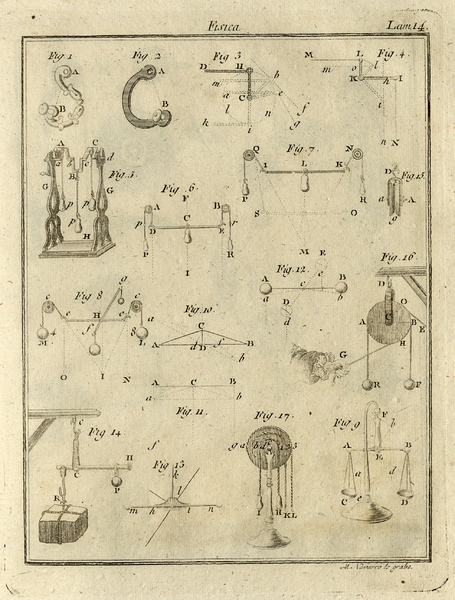 Fisica Lam 14.
Fig 1 Fig 2 Fig 3 Fig 4.
A A D H b M L
m o l
B B a C e K h I
l n f i
k i g
n N
A C Q Fig 7. N D Fig 15.
a b c d I L K
G B G Fig 5. Fig 6. P R a A
p p F g
H A B S O
p D C E r
P R
I
M E Fig 16
Fig 12 e D
g A B O
Fig 8 a c b
c e Fig 10. D A B E
e H e C d H
M f L A d D f B G
b R F
O I N A C B
a b
Fig 11. Fig 17. Fig 9
c Fig 14 f F b
C H Fig 13 g a A E B
P k a d
R l C e D
m h i n I H K L
M. Navarro lo grabo.